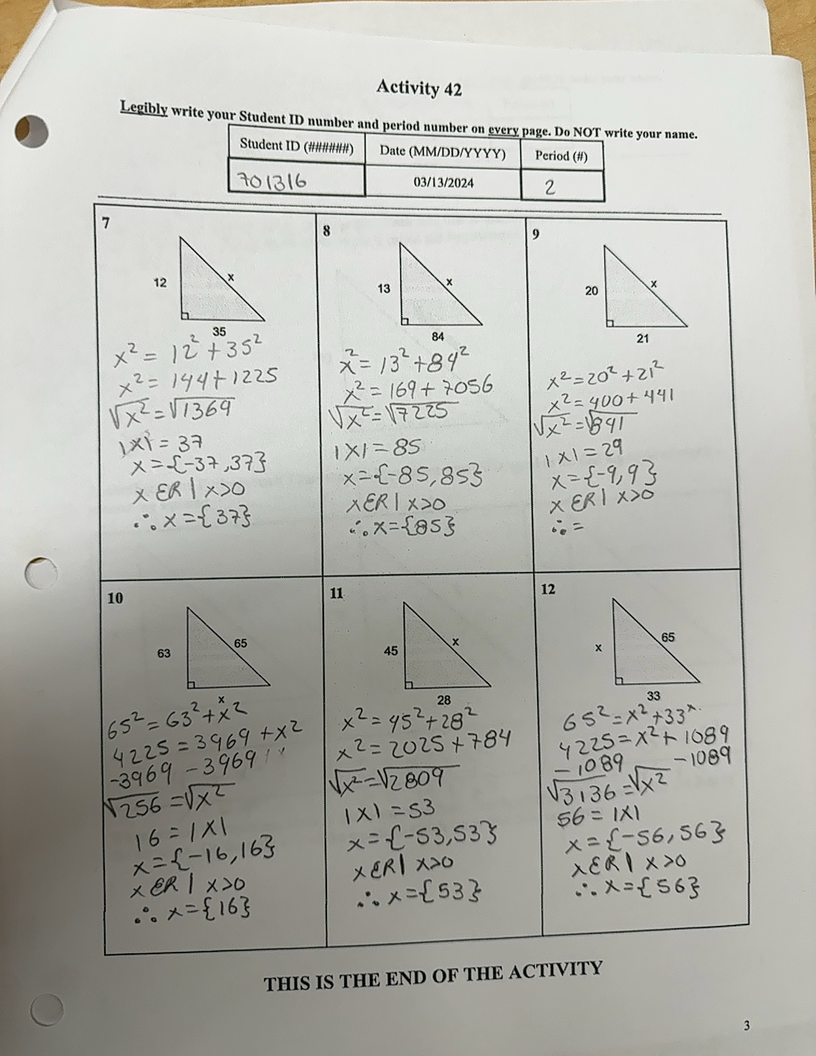 Activity 42
Legibly write your Student ID number and period number on every page. Do NOT write your name.
Student ID (######) Date (MM/DD/YYYY) Period (#)
701316 03/13/2024 2
7
12
x
35
x² = 12² + 35²
x² = 144 + 1225
√x² = √1369
|x| = 37
x = {-37, 37}
x ∈ R | x>0
∴ x = {37}
8
13
x
84
x² = 13² + 84²
x² = 169 + 7056
√x² = √7225
|x| = 85
x = {-85, 85}
x ∈ R | x>0
∴ x = {85}
9
20
x
21
x² = 20² + 21²
x² = 400 + 441
√x² = √841
|x| = 29
x = {-9, 9}
x ∈ R | x>0
∴ =
10
63
65
x
65² = 63² + x²
4225 = 3969 + x²
-3969 -3969
√256 = √x²
16 = |x|
x = {-16, 16}
x ∈ R | x>0
∴ x = {16}
11
45
x
28
x² = 45² + 28²
x² = 2025 + 784
√x² = √2809
|x| = 53
x = {-53, 53}
x ∈ R | x>0
∴ x = {53}
12
x
65
33
65² = x² + 33²
4225 = x² + 1089
-1089 -1089
√3136 = √x²
56 = |x|
x = {-56, 56}
x ∈ R | x>0
∴ x = {56}
THIS IS THE END OF THE ACTIVITY
3